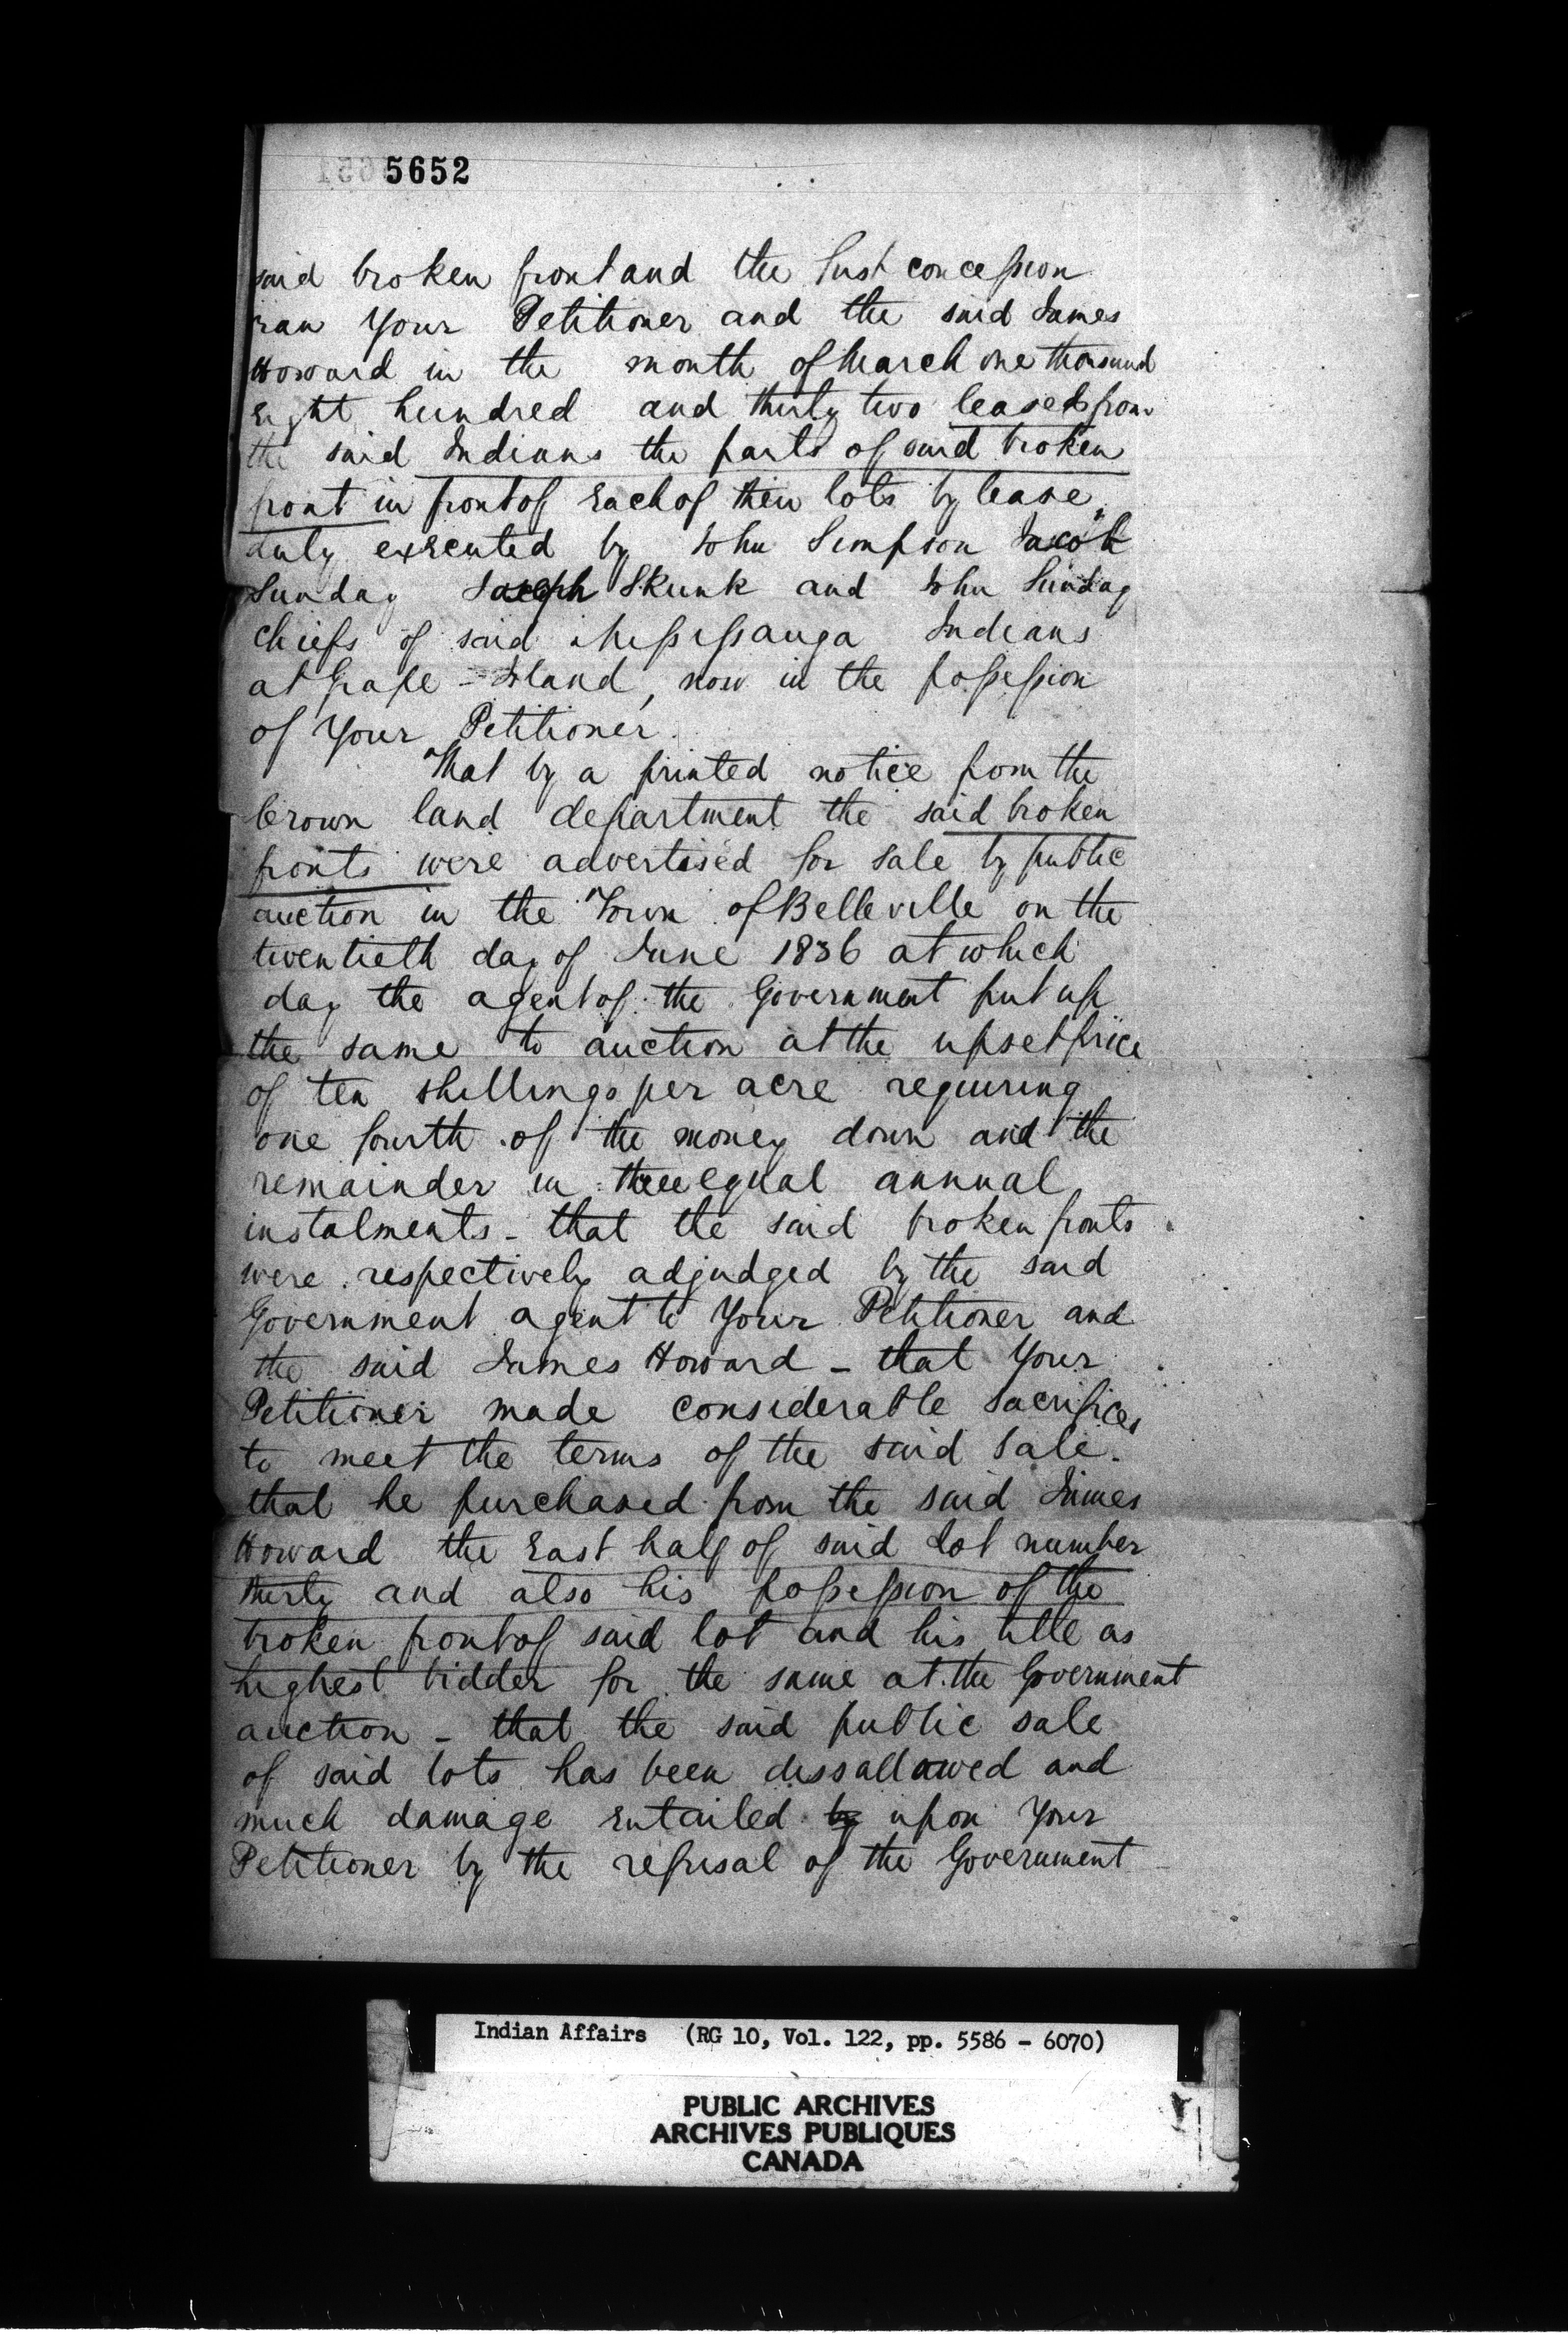 5652
said broken front and the first concession
ran Your Petitioner and the said James
Howard in the month of March one thousand
Eight hundred and thirty two leased from
the said Indians the parts of said broken
front in front of Each of their lots by lease,
duly executed by John Simpson Jacob
Sunday Joseph Skunk and John Sunday
chiefs of said Missisauga Indians
at Grape-Island, now in the possession
of Your Petitioner.
That by a printed notice from the
Crown land department the said broken
fronts were advertised for sale by public
auction in the Town of Belleville on the
twentieth day of June 1836 at which
day the agent of the Government put up
the same to auction at the upset price
of ten shillings per acre requiring
one fourth of the money down and the
remainder in three equal annual
instalments - that the said broken fronts
were respectively adjudged by the said
Government agent to Your Petitioner and
the said James Howard - that Your
Petitioner made considerable sacrifices
to meet the terms of the said sale.
that he purchased from the said James
Howard the East half of said lot number
thirty and also his possession of the
broken front of said lot and his title as
highest bidder for the same at the Government
auction - that the said public sale
of said lots has been dissallawed and
much damage Entailed by upon Your
Petitioner by the refusal of the Government
Indian Affairs (RG 10, Vol. 122, pp. 5586 - 6070)
PUBLIC ARCHIVES
ARCHIVES PUBLIQUES
CANADA